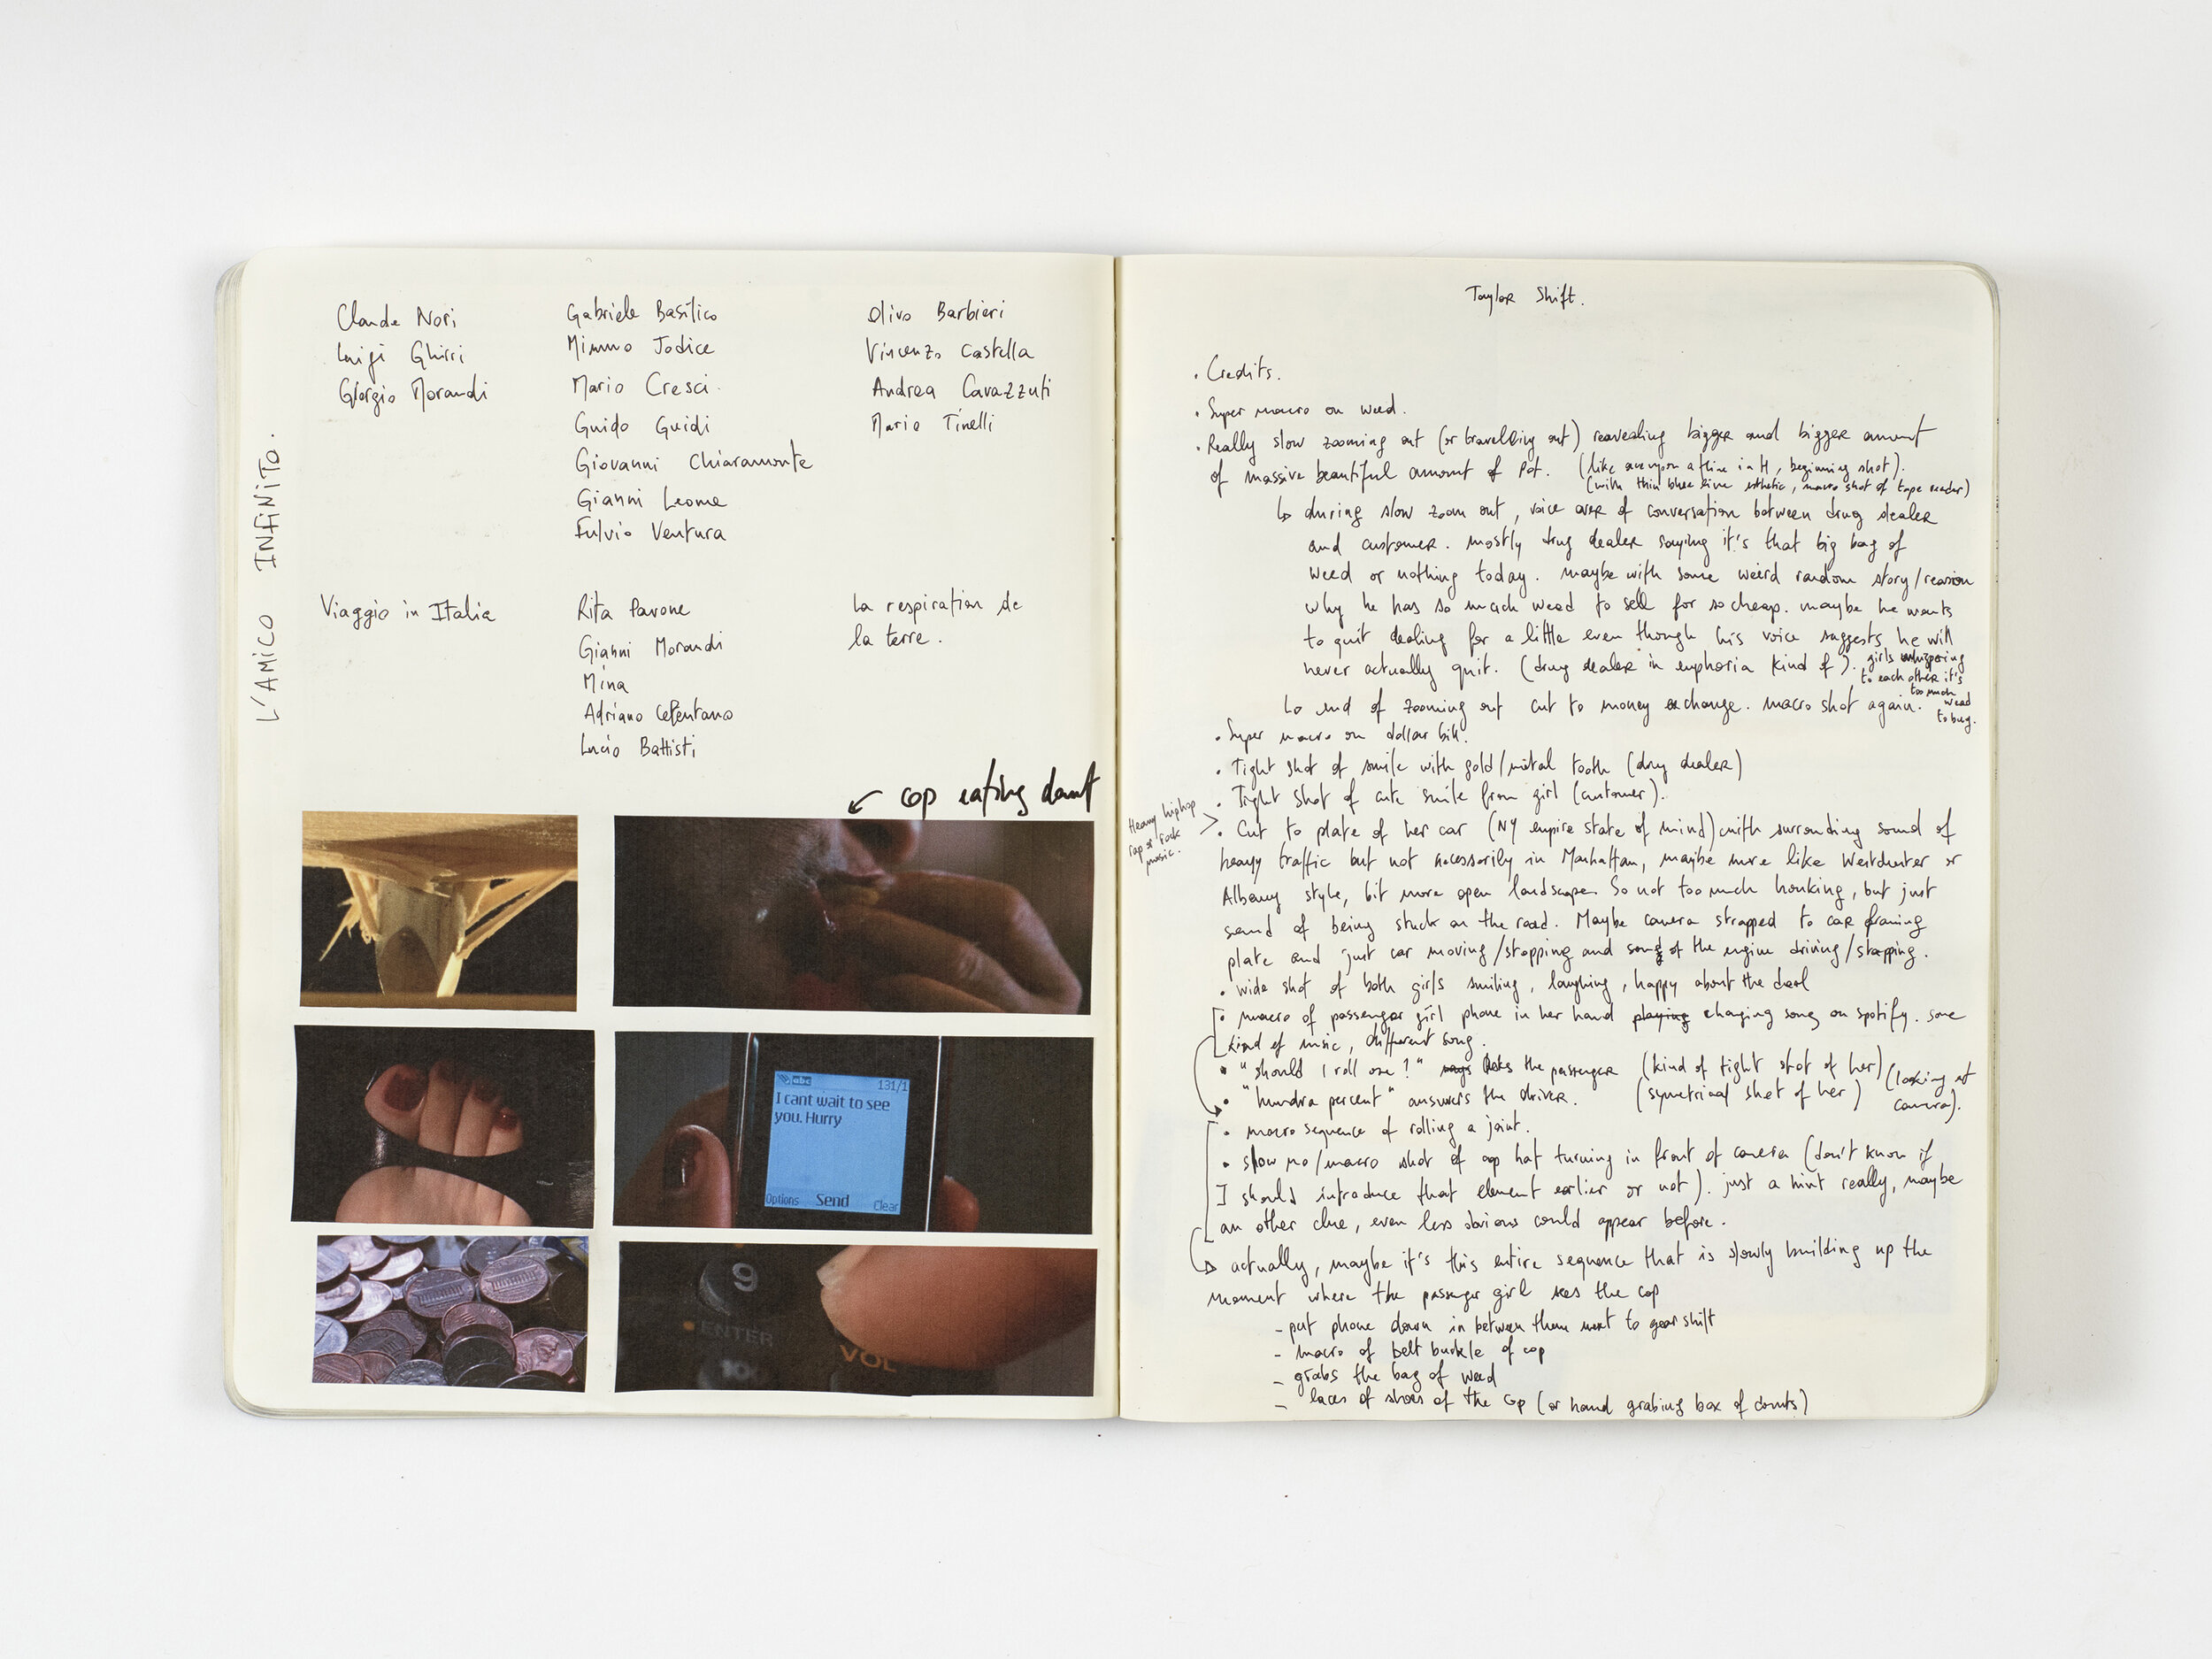 L'AMICO INFINITO.
Claude Nori
Luigi Ghirri
Giorgio Morandi
Gabriele Basilico
Mimmo Jodice
Mario Cresci.
Guido Guidi
Giovanni Chiaramonte
Gianni Leone
Fulvio Ventura
Olivo Barbieri
Vincenzo Castella
Andrea Cavazzuti
Mario Tinelli
Viaggio in Italia
Rita Pavone
Gianni Morandi
Mina
Adriano Celentano
Lucio Battisti
La respiration de
la terre.
cop eating donut
abc 131/1
I cant wait to see
you. Hurry
Options Send Clear
9
ENTER
VOL
10
Taylor Shift.
• Credits.
• Super macro on weed.
• Really slow zooming out (or travelling out) revealing bigger and bigger amount
of massive beautiful amount of pot. (like once upon a time in H, beginning shot).
(with thin blue line esthetic, macro shot of tape reader)
during slow zoom out, voice over of conversation between drug dealer
and customer. mostly drug dealer saying it's that big bag of
weed or nothing today. maybe with some weird random story/reason
why he has so much weed to sell for so cheap. maybe he wants
to quit dealing for a little even though his voice suggests he will
never actually quit. (drug dealer in euphoria kind of). girls whispering
to each other it's
too much
weed
to buy.
end of zooming out cut to money exchange. macro shot again.
• Super macro on dollar bill.
• Tight shot of smile with gold/metal tooth (drug dealer)
• Tight shot of cute smile from girl (customer).
Heavy hiphop
rap or rock
music.
• Cut to plate of her car (NY empire state of mind) with surrounding sound of
heavy traffic but not necessarily in Manhattan, maybe more like Westchester or
Albany style, bit more open landscape. So not too much honking, but just
sound of being stuck on the road. Maybe camera strapped to car framing
plate and just car moving/stopping and song of the engine driving/stopping.
• wide shot of both girls smiling, laughing, happy about the deal
• macro of passenger girl phone in her hand playing changing song on spotify. same
kind of music, different song.
• "should I roll one?" says asks the passenger (kind of tight shot of her)
• "hundra percent" answers the driver. (symetrical shot of her) (looking at
camera).
• macro sequence of rolling a joint.
• slow mo/macro shot of cop hat turning in front of camera (don't know if
I should introduce that element earlier or not). just a hint really, maybe
an other clue, even less obvious could appear before.
actually, maybe it's this entire sequence that is slowly building up the
moment where the passenger girl sees the cop
- put phone down in between them next to gear shift
- macro of belt buckle of cop
- grabs the bag of weed
- laces of shoes of the cop (or hand grabing box of donuts)